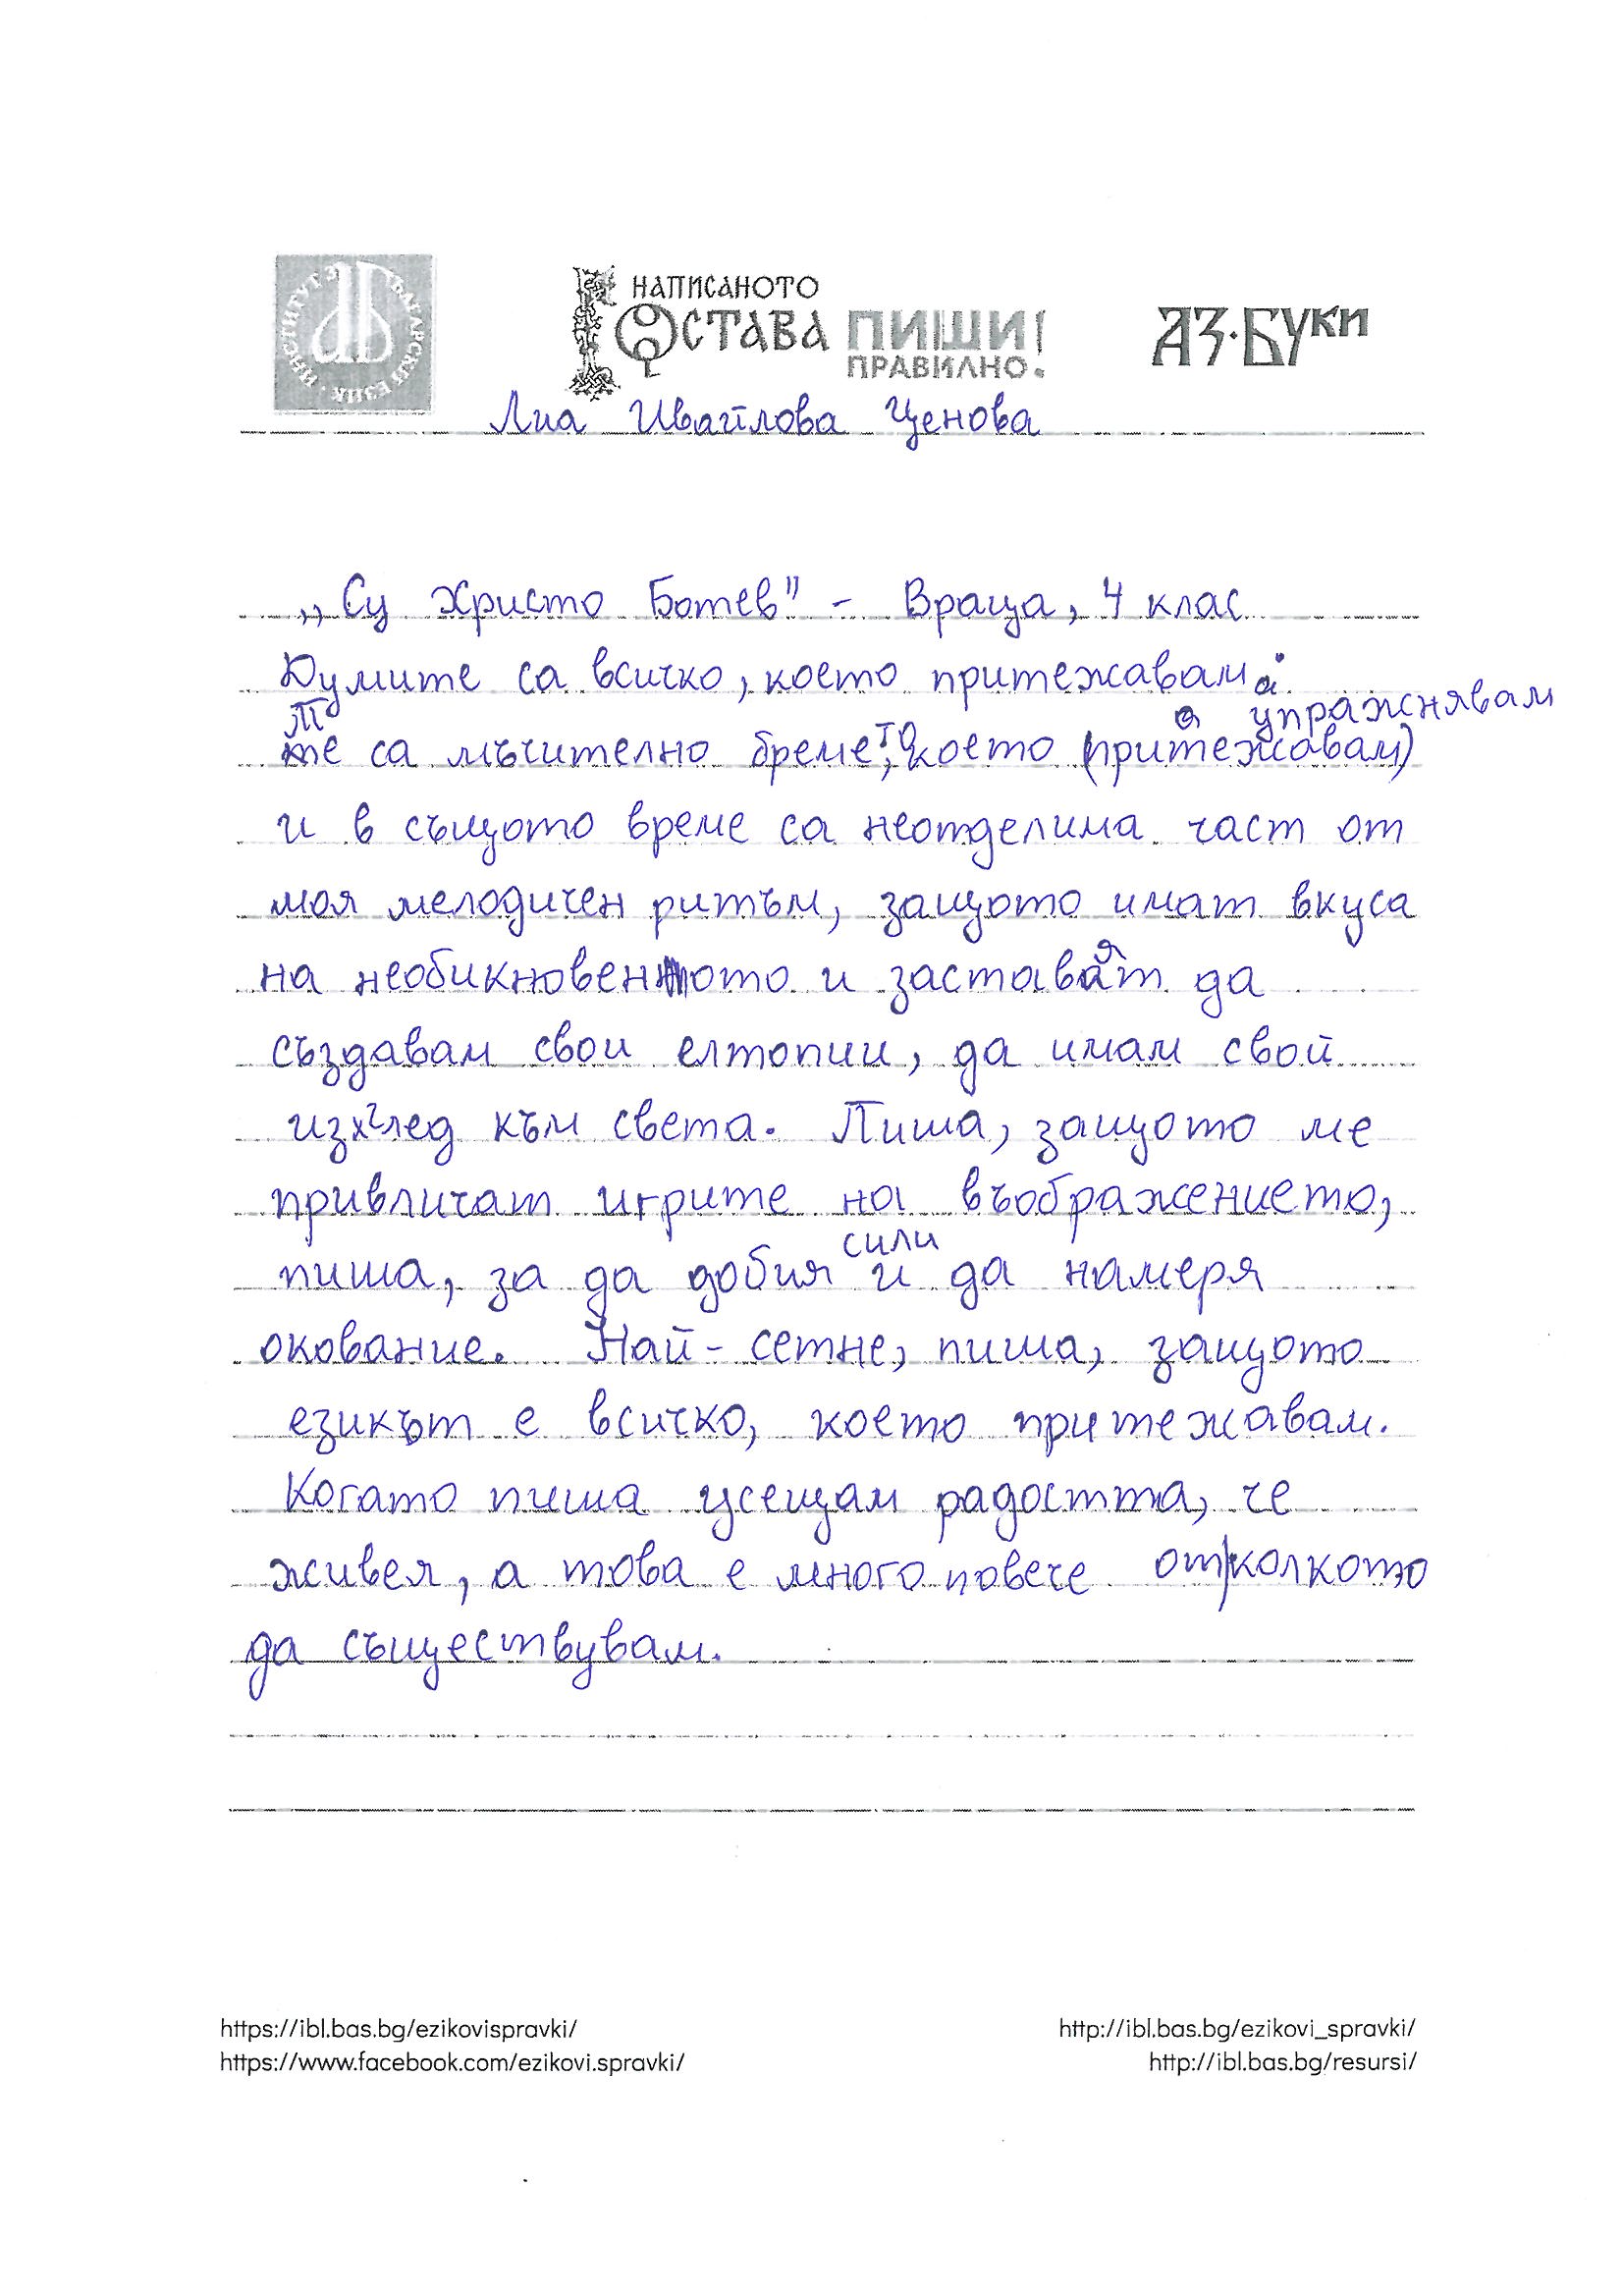 ИНСТИТУТ ЗА БЪЛГАРСКИ ЕЗИК
НАПИСАНОТО
ОСТАВА ПИШИ!
ПРАВИЛНО.
АЗ·БУКИ
Лиа Ивайлова Ценова
„Су Христо Ботев" - Враца, 4 клас
Думите са всичко, което притежавам.
Те са мъчително бреме, което (притежавам) упражснявам
и в същото време са неотделима част от
моя мелодичен ритъм, защото имат вкуса
на необикновеното и заставят да
създавам свои елтопии, да имам свой
изглед към света. Пиша, защото ме
привличат игрите на въображението,
пиша, за да добия сили и да намеря
окование. Най-сетне, пиша, защото
езикът е всичко, което притежавам.
Когато пиша усещам радостта, че
живея, а това е много повече отколкото
да съществувам.
https://ibl.bas.bg/ezikovispravki/
https://www.facebook.com/ezikovi.spravki/
http://ibl.bas.bg/ezikovi_spravki/
http://ibl.bas.bg/resursi/